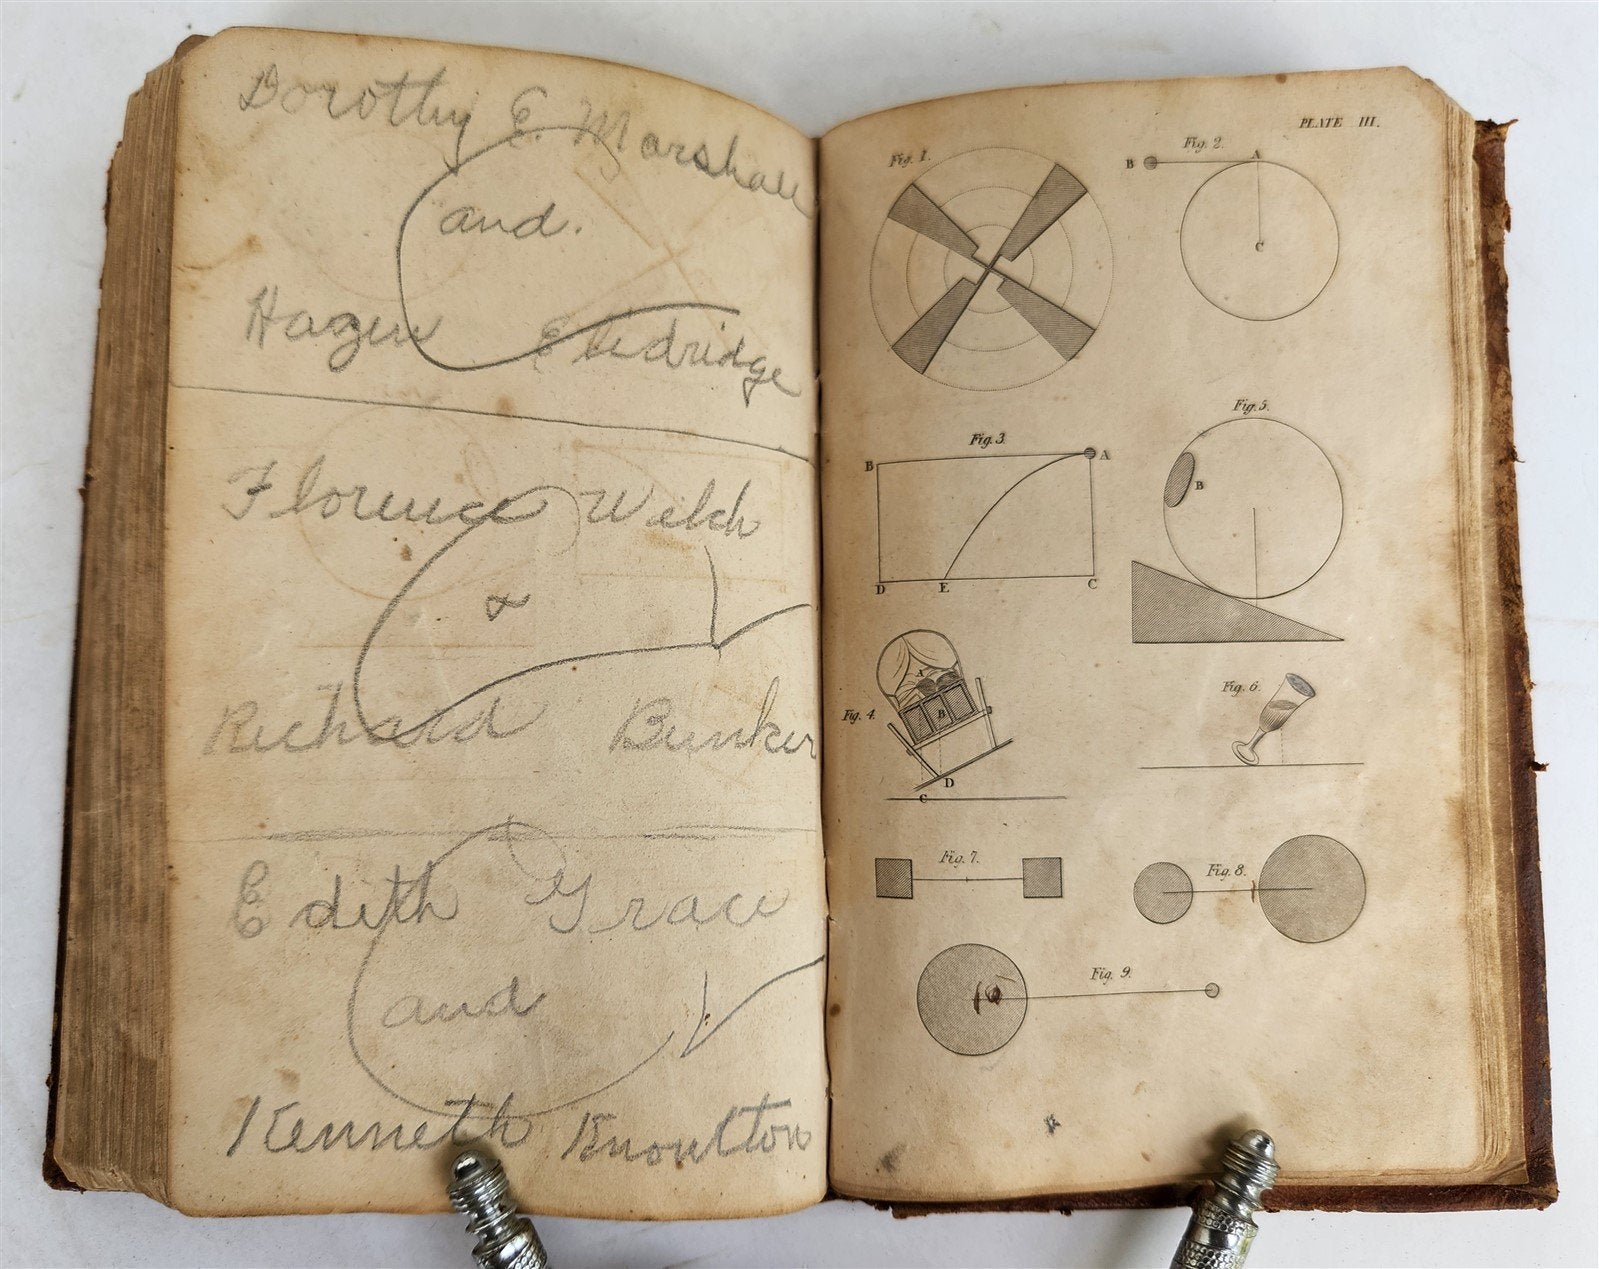 Dorothy E. Marshall
and.
Hazen Eledridge
Florence Welch
&
Richard Bunker
Edith Grace
and
Kenneth Knowlton
PLATE III.
Fig. 1.
Fig. 2.
B A
C
Fig. 3.
B A
D E C
Fig. 5.
B
Fig. 4.
A
B
D
C
Fig. 6.
Fig. 7.
Fig. 8.
Fig. 9.